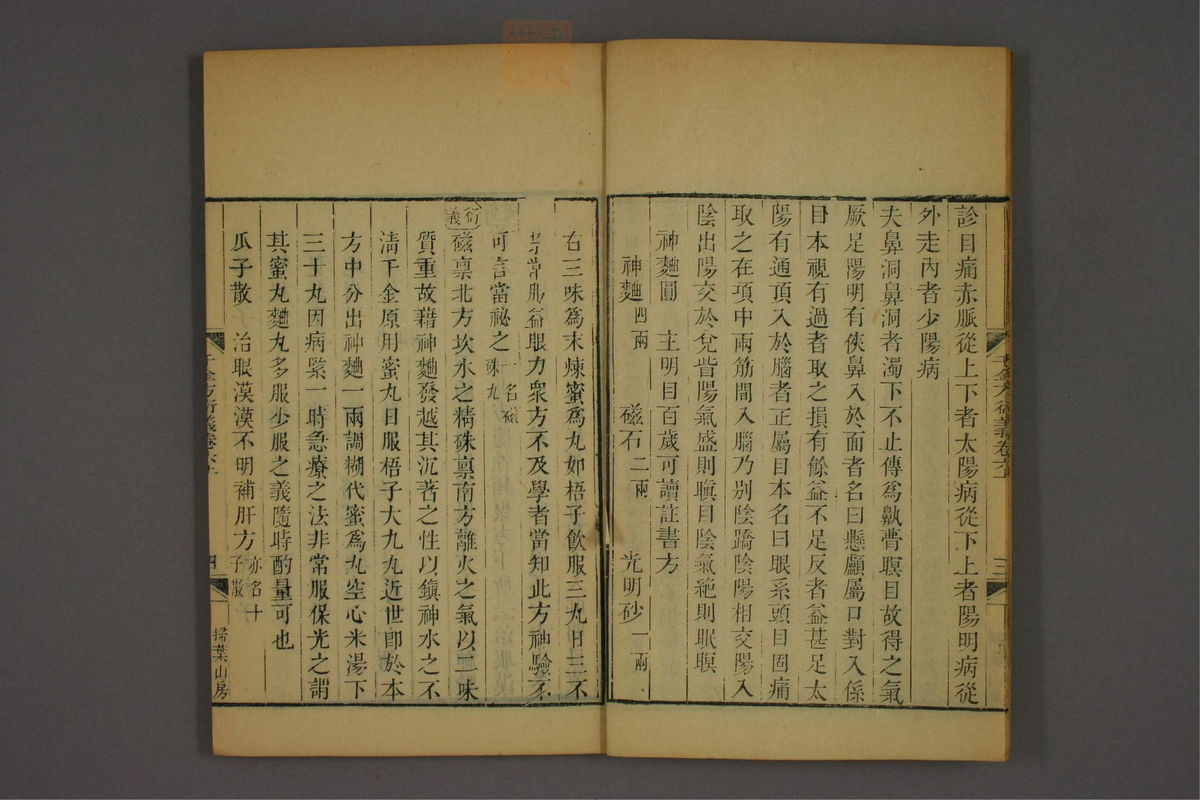 診目痛赤脈從上下者太陽病從下上者陽明病從
外走內者少陽病
夫鼻洞鼻洞者濁下不止傳爲鼽瞢瞑目故得之氣
厥足陽明有俠鼻入於面者名曰懸顱屬口對入係
目本視有過者取之損有餘益不足反者益甚足太
陽有通項入於腦者正屬目本名曰眼系頭目固痛
取之在項中兩筋間入腦乃別陰蹻陰陽相交陽入
陰出陽交於兌眥陽氣盛則瞋目陰氣絶則眠瞑
神麯圓 主明目百歲可讀註書方
神麯四兩 磁石二兩 光明砂一兩
千金方衍義卷六上
三
右三味爲末煉蜜爲丸如梧子飲服三丸日三不
禁常服益眼力衆方不及學者當知此方神驗不
可言當祕之一名磁硃丸
衍義 磁禀北方坎水之精硃禀南方離火之氣以二味
質重故藉神麯發越其沉著之性以鎭神水之不
清千金原用蜜丸日服梧子大九丸近世卽於本
方中分出神麯一兩調糊代蜜爲丸空心米湯下
三十丸因病緊一時急療之法非常服保光之謂
其蜜丸麯丸多服少服之義隨時酌量可也
瓜子散 治眼漠漠不明補肝方亦名十子散
千金方衍義卷六上
四
掃葉山房